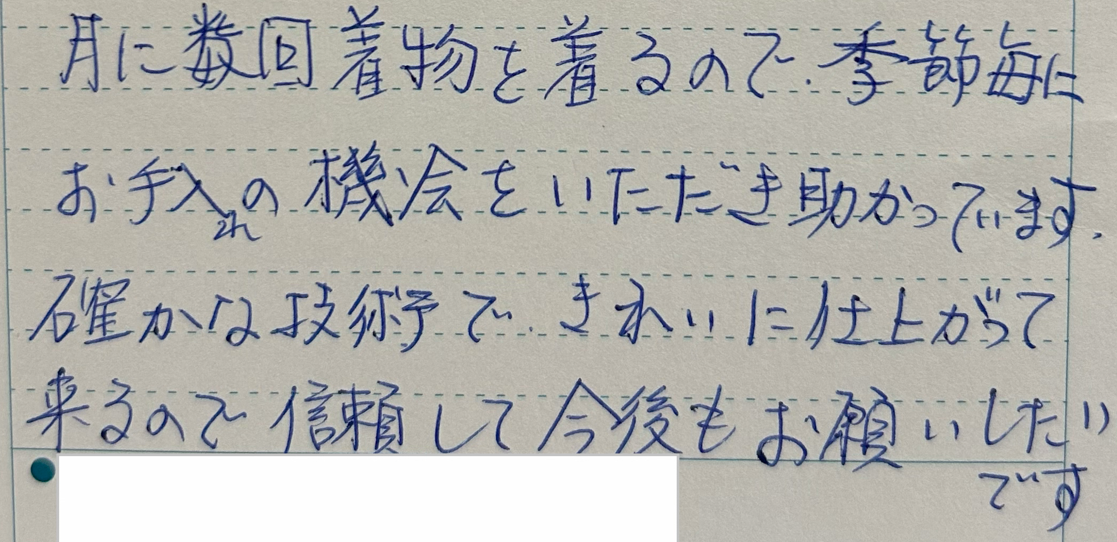 月に数回着物を着るので、季節毎に
お手入れの機会をいただき助かっています。
確かな技術で、きれいに仕上がって
来るので信頼して今後もお願いしたい
です